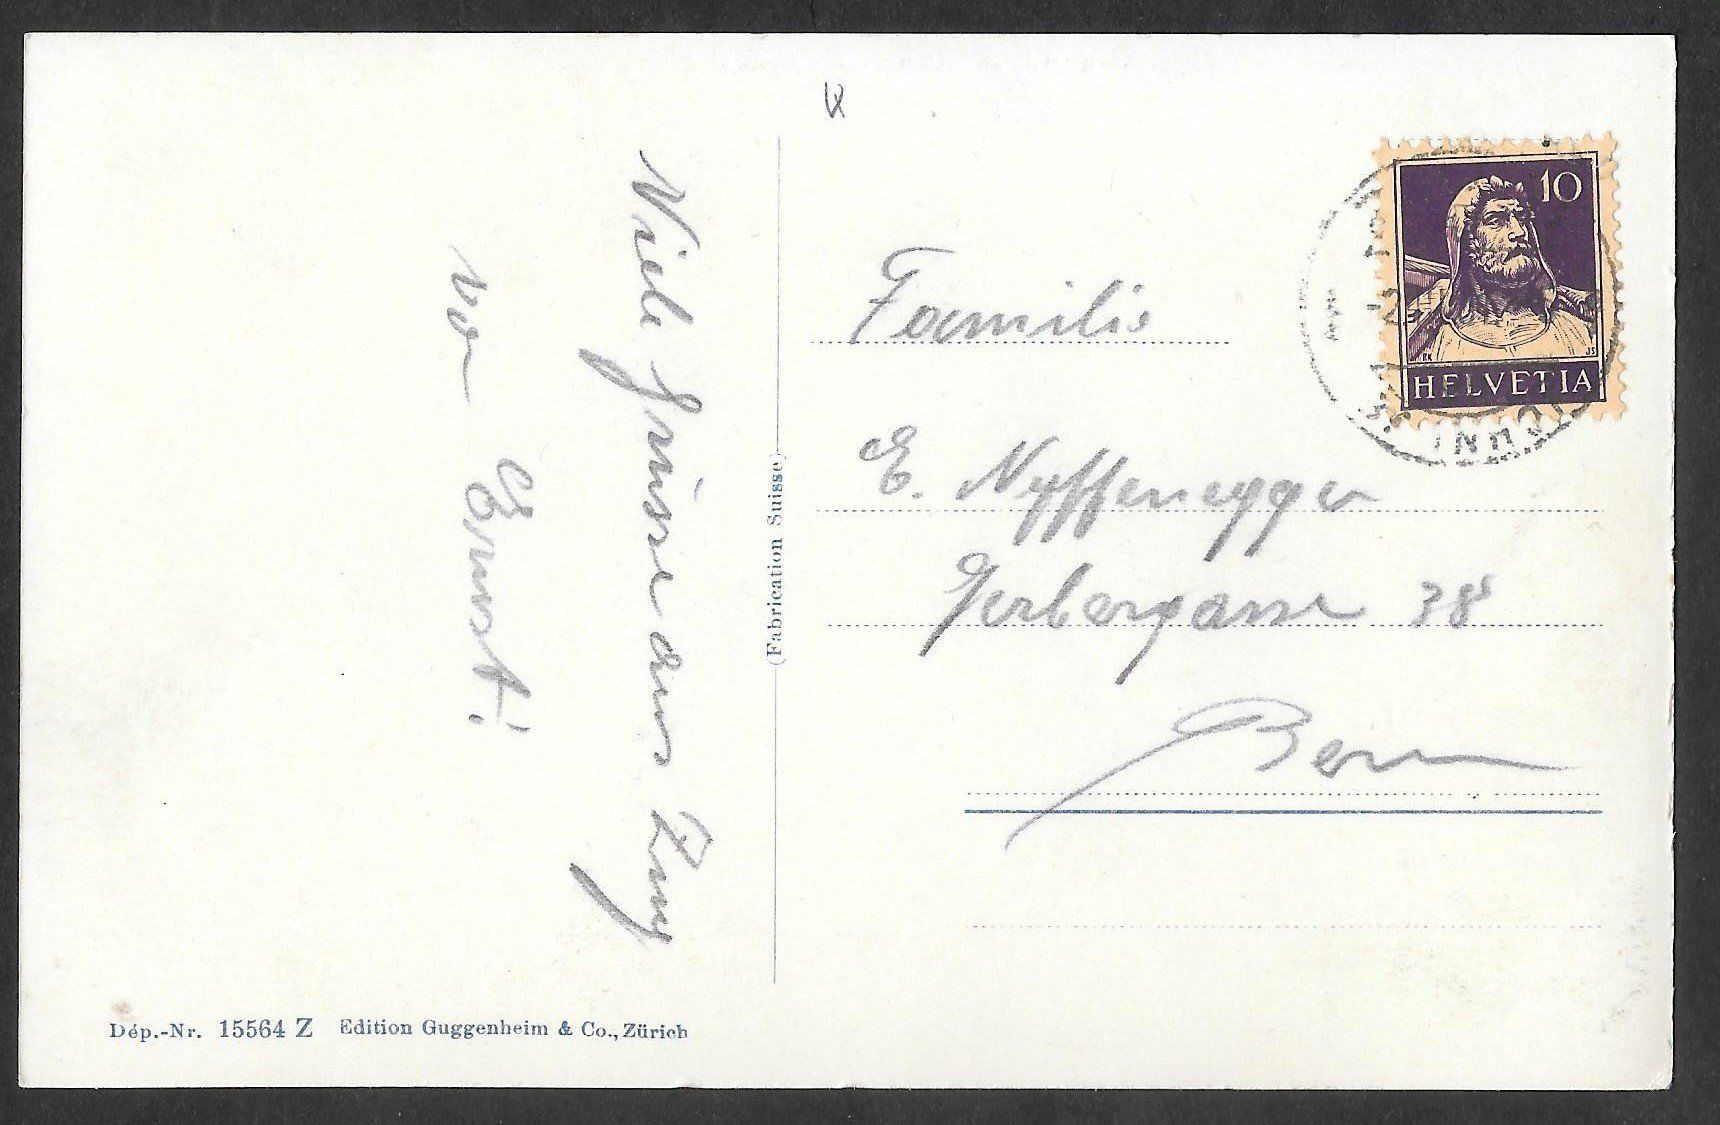 Viele Grüsse aus Zug
von Ernst!
Familie
E. Nyffenegger
Gerbergasse 38
Bern
(Fabrication Suisse)
Dép.-Nr. 15564 Z Edition Guggenheim & Co., Zürich
10
HELVETIA